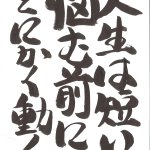 人生は短い
悩む前に
とにかく動く